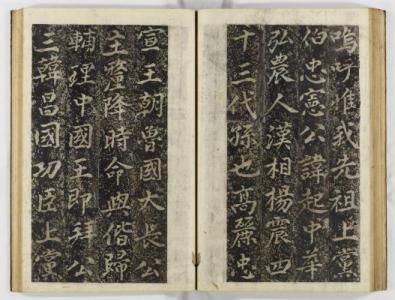 嗚呼惟我先祖上黨
伯忠憲公諱起中華
弘農人漢相楊震四
十三代孫也高麗忠
宣王朝魯國大長公
主釐降時命與偕歸
輔理中國王即拜公
三韓昌國功臣上黨